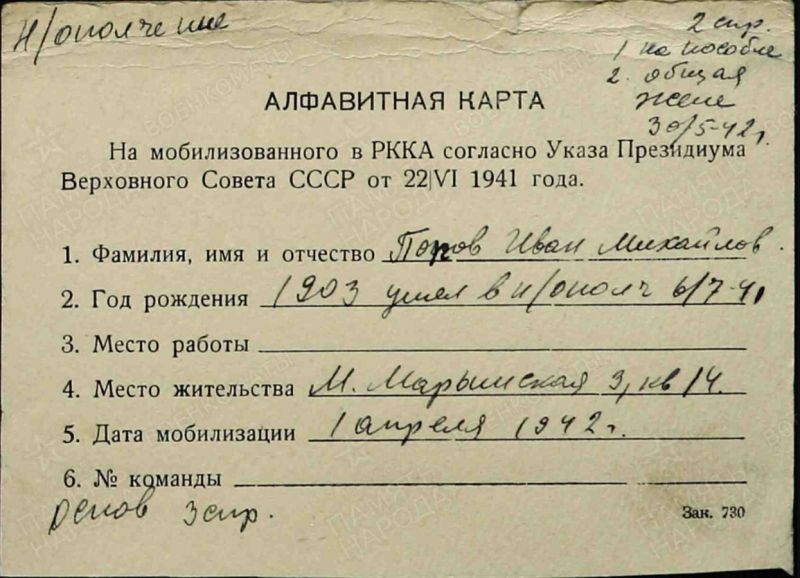 Н/ополчение
2 спр.
1 на пособие
2. общая
жене
30/5-42г.
АЛФАВИТНАЯ КАРТА
На мобилизованного в РККА согласно Указа Президиума
Верховного Совета СССР от 22|VI 1941 года.
1. Фамилия, имя и отчество Попов Иван Михайлов.
2. Год рождения 1903 ушел в н/ополч 6/7-41
3. Место работы
4. Место жительства М. Марьинская 3, кв 14.
5. Дата мобилизации 1 апреля 1942 г.
6. № команды
основ 3 спр.
Зак. 730